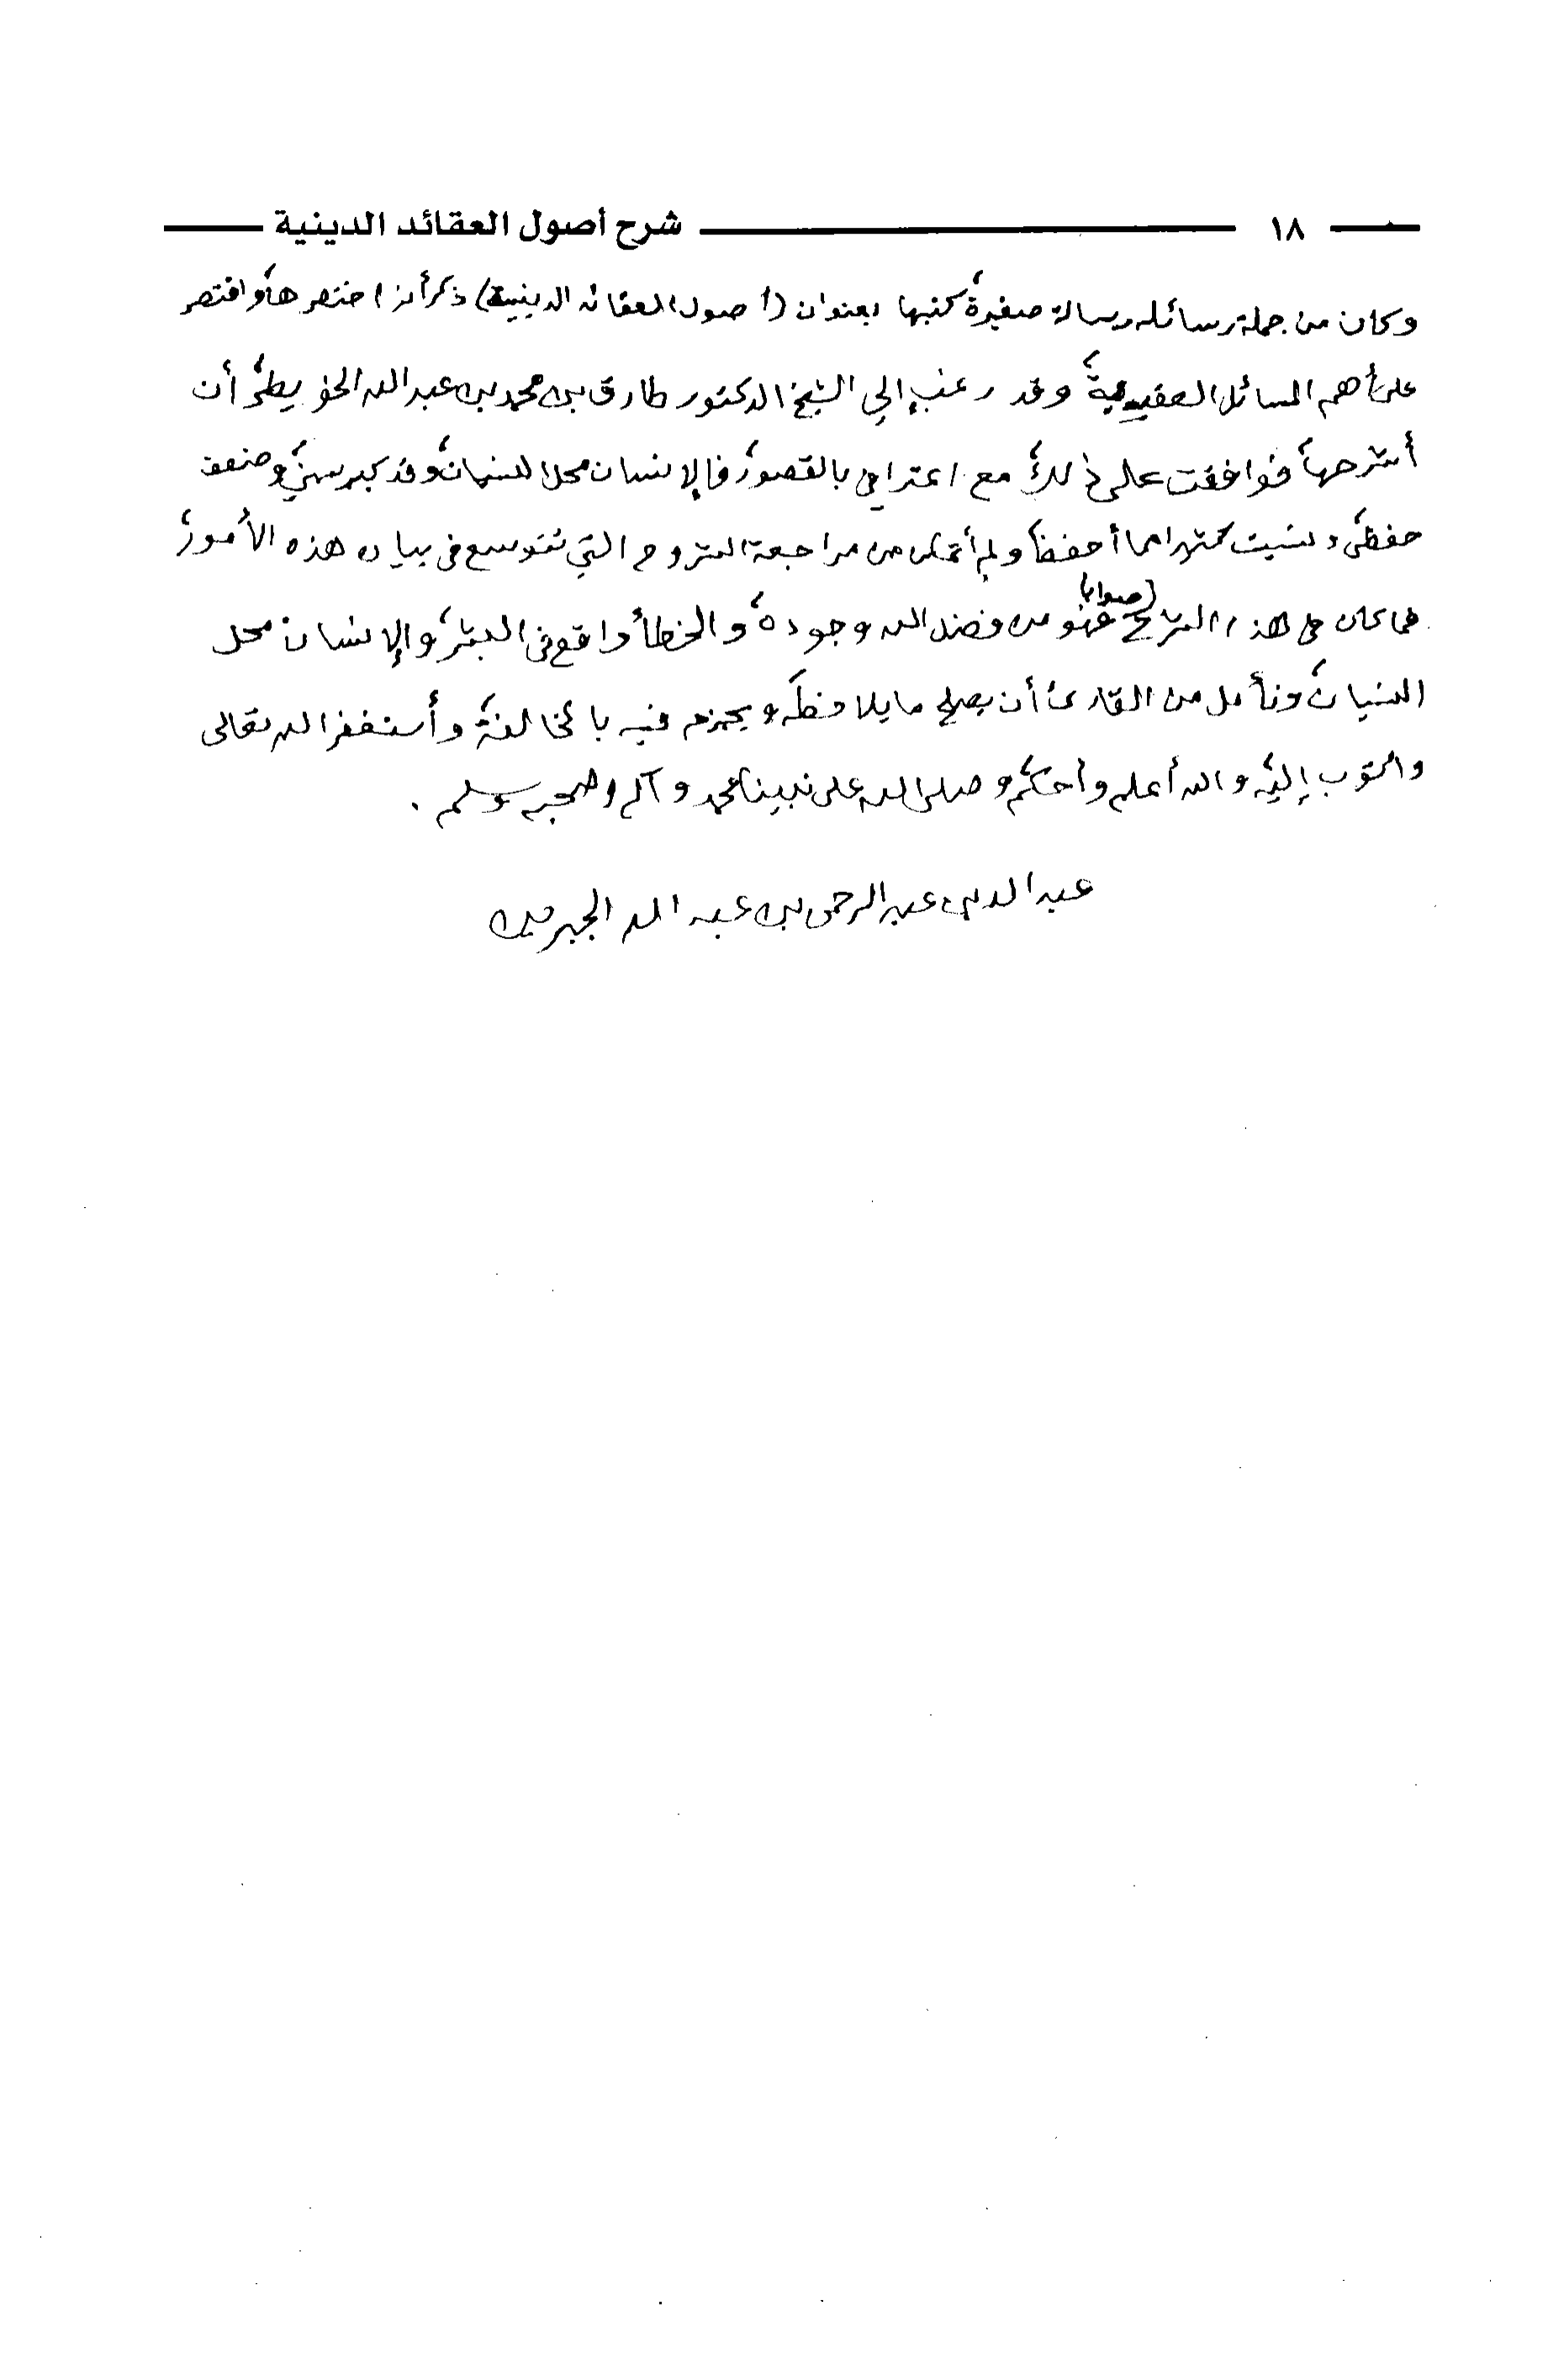 ١٨ شرح أصول العقائد الدينية
وكان من جملة رسائله رسالة صغيرة كتبها بعنوان (أصول العقائد الدينية) ذكر أنه اختصرها واقتصر
على أهم المسائل العقيدية، وقد رغب إلي الشيخ الدكتور طارق بن محمد بن عبدالله الخويطر أن
أشرحها، فوافقت على ذلك، مع اعترافي بالقصور، فالإنسان محل النسيان، وقد كبر سني، وضعف
حفظي، ونسيت كثيرا مما أحفظ، ولم أتمكن من مراجعة الشروح التي تتوسع في بيان هذه الأمور،
فما كان في هذا الشرح (صوابا) فهو من فضل الله وجوده، والخطأ واقع في البشر، والإنسان محل
النسيان، ونأمل من القارئ أن يصلح ما يلاحظه، ويجزم فيه بالمخالفة، وأستغفر الله تعالى
وأتوب إليه، والله أعلم وأحكم، وصلى الله على نبينا محمد وآله وصحبه وسلم.
عبدالله بن عبدالرحمن بن عبدالله الجبرين